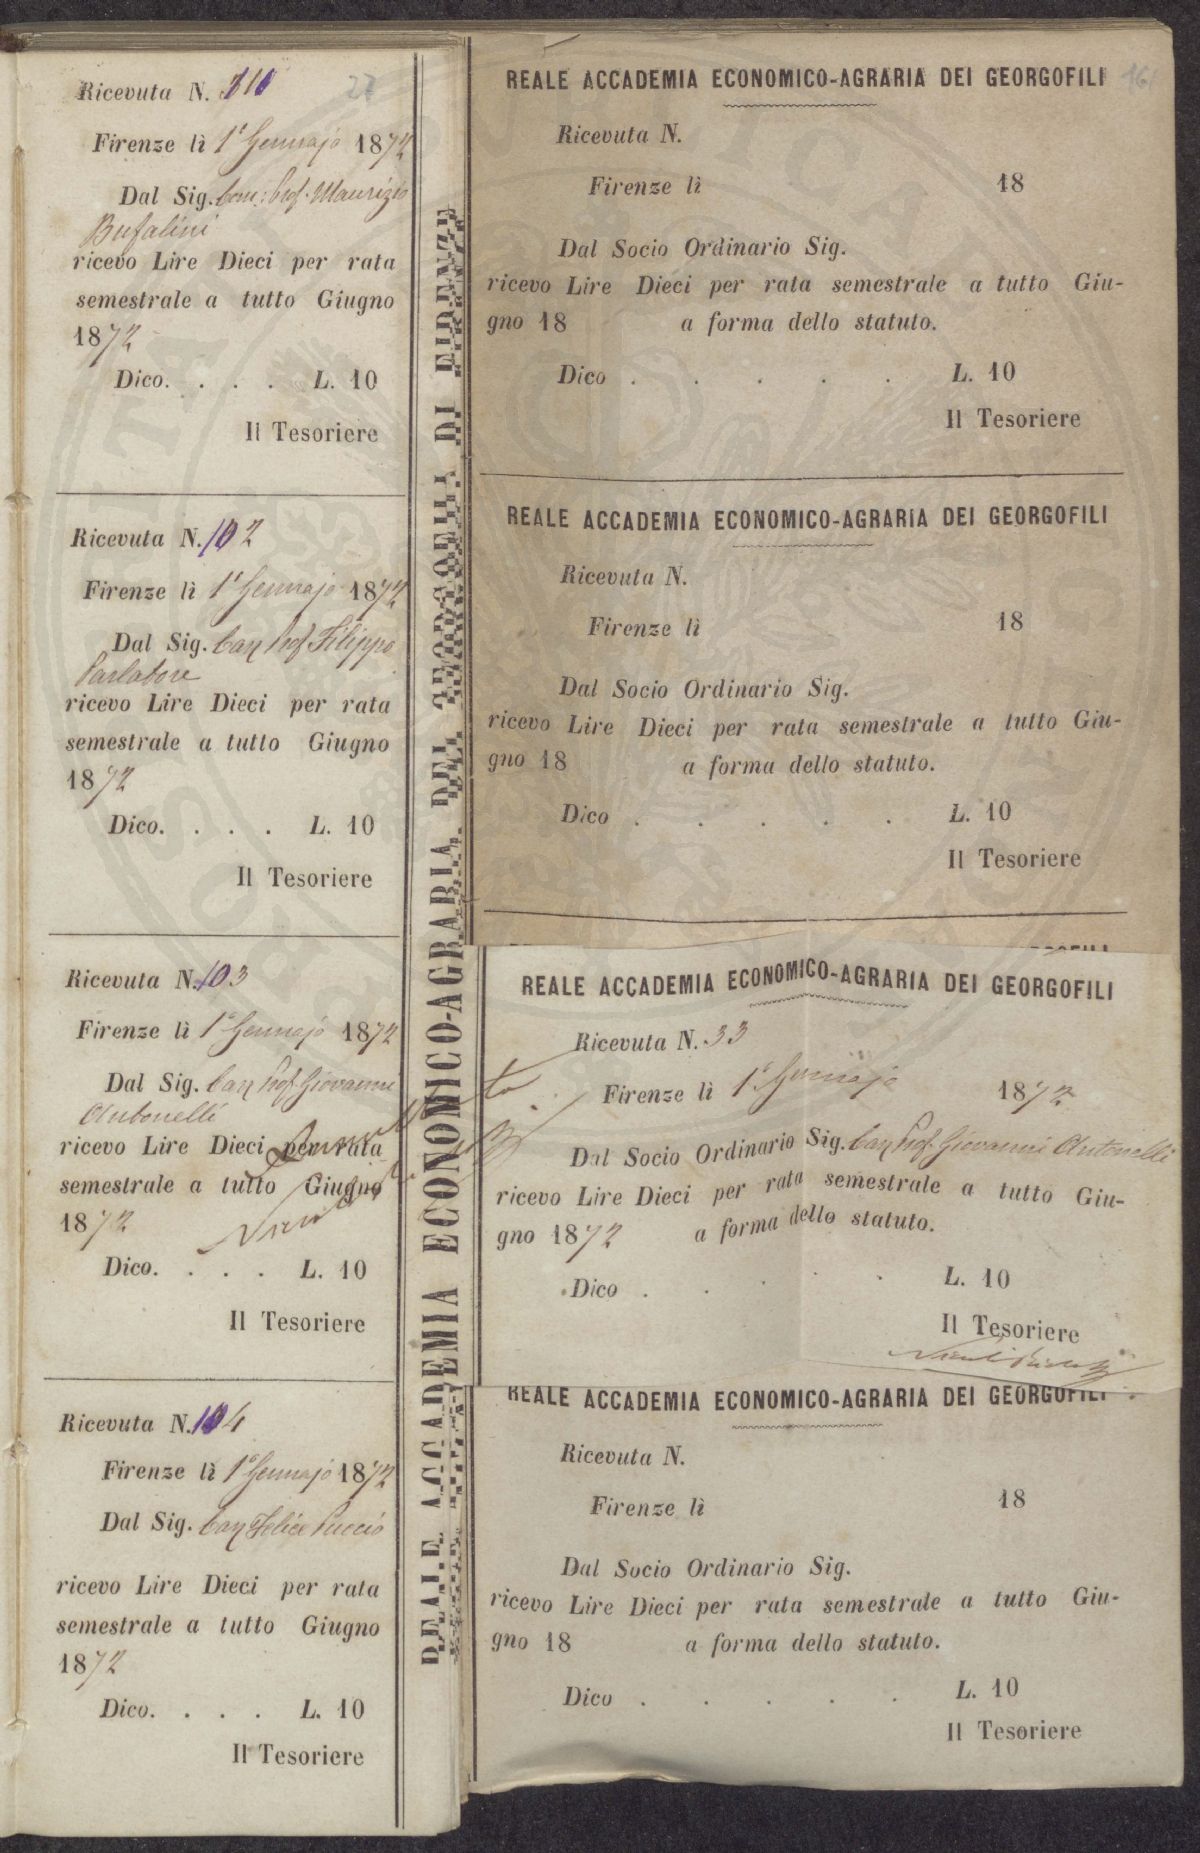 Ricevuta N.
27
Firenze lì 1° Gennajo 1872
Dal Sig. Com: Prof. Maurizio
Bufalini
ricevo Lire Dieci per rata
semestrale a tutto Giugno
1872
Dico. . . . L. 10
Il Tesoriere
Ricevuta N. 102
Firenze lì 1° Gennajo 1872
Dal Sig. Cav Prof Filippo
Parlatore
ricevo Lire Dieci per rata
semestrale a tutto Giugno
1872
Dico. . . . L. 10
Il Tesoriere
Ricevuta N. 103
Firenze lì 1° Gennajo 1872
Dal Sig. Cav Prof. Giovanni
Antonelli
ricevo Lire Dieci per rata
semestrale a tutto Giugno
1872
Dico. . . . L. 10
Il Tesoriere
Ricevuta N. 104
Firenze lì 1° Gennajo 1872
Dal Sig. Cav Felice Puccio
ricevo Lire Dieci per rata
semestrale a tutto Giugno
1872
Dico. . . . L. 10
Il Tesoriere
REALE ACCADEMIA ECONOMICO-AGRARIA DEI GEORGOFILI DI FIRENZE
REALE ACCADEMIA ECONOMICO-AGRARIA DEI GEORGOFILI
161
Ricevuta N.
Firenze lì 18
Dal Socio Ordinario Sig.
ricevo Lire Dieci per rata semestrale a tutto Giu-
gno 18 a forma dello statuto.
Dico . . . . . L. 10
Il Tesoriere
REALE ACCADEMIA ECONOMICO-AGRARIA DEI GEORGOFILI
Ricevuta N.
Firenze lì 18
Dal Socio Ordinario Sig.
ricevo Lire Dieci per rata semestrale a tutto Giu-
gno 18 a forma dello statuto.
Dico . . . . . L. 10
Il Tesoriere
REALE ACCADEMIA ECONOMICO-AGRARIA DEI GEORGOFILI
Ricevuta N. 33
Firenze lì 1° Gennajo 1872
Dal Socio Ordinario Sig. Cav Prof. Giovanni Antonelli
ricevo Lire Dieci per rata semestrale a tutto Giu-
gno 1872 a forma dello statuto.
Dico . . . . L. 10
Il Tesoriere
REALE ACCADEMIA ECONOMICO-AGRARIA DEI GEORGOFILI
Ricevuta N.
Firenze lì 18
Dal Socio Ordinario Sig.
ricevo Lire Dieci per rata semestrale a tutto Giu-
gno 18 a forma dello statuto.
Dico . . . . . L. 10
Il Tesoriere